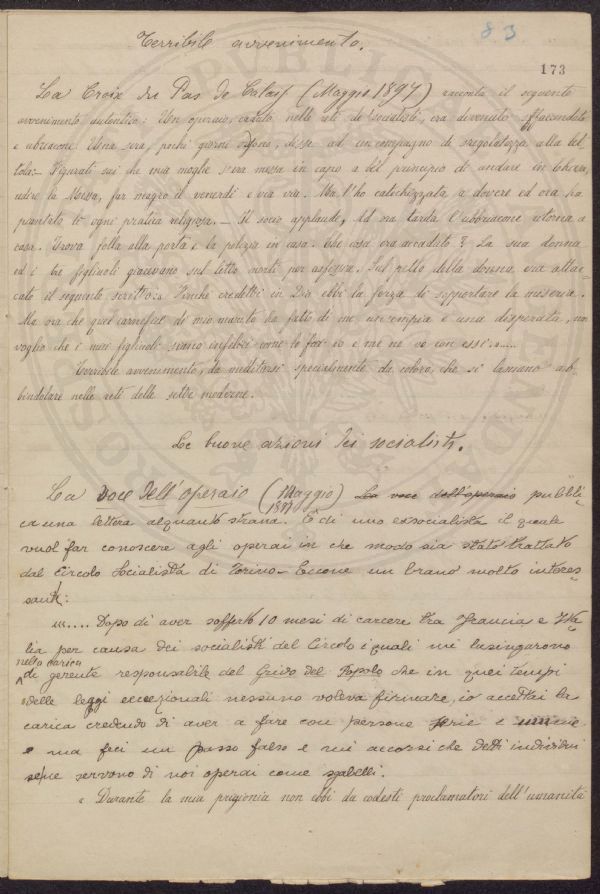 83
173
Terribile avvenimento.
La Croix du Pas de Calais (Maggio 1897) racconta il seguente
avvenimento autentico: Un operaio, caduto nelle reti de' socialisti, era divenuto sfaccendato
e ubriacone. Una sera, pochi giorni or sono, disse ad un compagno di sregolatezza alla bet
tola:- Figurati sai che mia moglie s'era messa in capo a bel principio di andare in Chiesa,
udire la Messa, far magro il venerdì e via via. Ma l'ho catechizzata a dovere ed ora ha
piantato lì ogni pratica religiosa. - Il socio applaude, Ad ora tarda l'ubbriacone ritorna a
casa. Trova folla alla porta e la polizia in casa. Che cosa era accaduto? La sua donna
ed i tre figliuoli giacevano sul letto morti per asfissia. Sul petto della donna, era attac=
cato il seguente scritto: Finchè credetti in Dio ebbi la forza di sopportare la miseria.
Ma ora che quel carnefice di mio marito ha fatto di me un'empia e una disperata, non
voglio che i miei figliuoli siano infelici come lo fui io e me ne vo con essi......
Terribile avvenimento, da meditarsi specialmente da coloro, che si lasciano ab
bindolare nelle reti delle sette moderne.
Le buone azioni dei socialisti.
La voce dell'operaio (Maggio 1897) La voce dell'operaio pubbli=
ca una lettera alquanto strana. È di uno exsocialista il quale
vuol far conoscere agli operai in che modo sia stato trattato
dal Circolo Socialista di Torino - Eccone un brano molto interes=
sante:
"..... Dopo di aver sofferto 10 mesi di carcere tra Francia e Ita=
lia per causa dei socialisti del Circolo i quali mi lusingarono
nella carica
di gerente responsabile del Grido del Popolo che in quei tempi
delle leggi eccezionali nessuno voleva firmare, io accettai la
carica credendo di aver a fare con persone serie e umane
e ma feci un passo falso e mi accorsi che detti individui
se ne servono di noi operai come sgabelli.
« Durante la mia prigionia non ebbi da codesti proclamatori dell'umanità